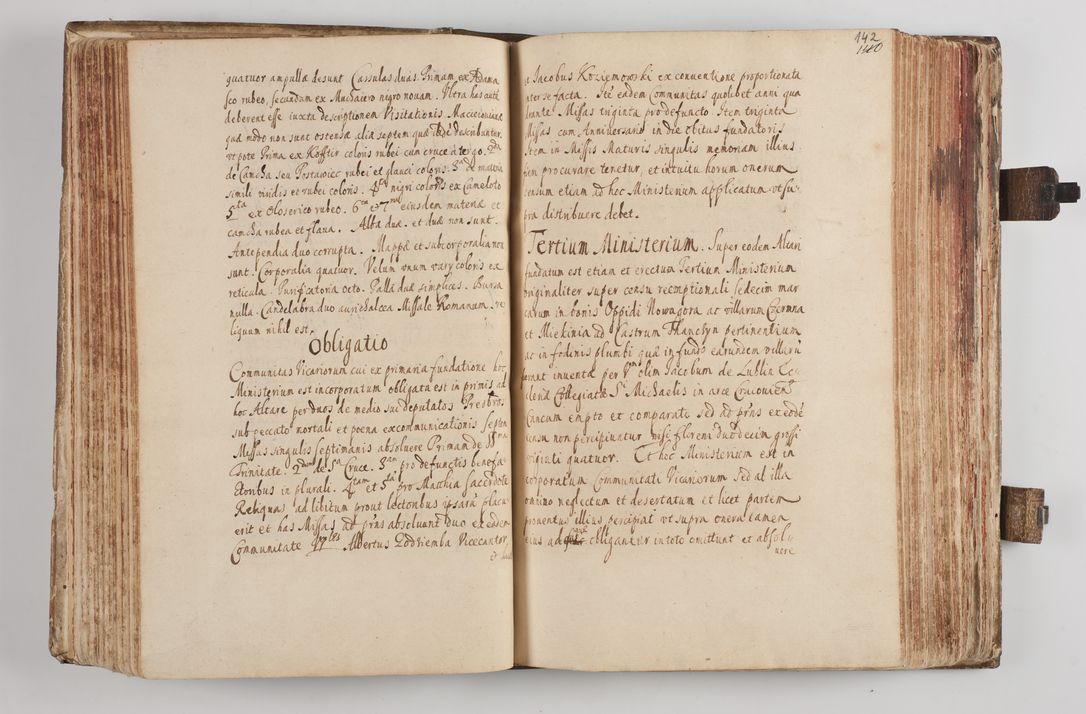 quatuor ampullæ desunt Cassulas duas. Primam ex Adama
sco rubeo, secundam ex Muchaiero nigro nouam. Ultra has autē
deberent esse iuxta descriptionem Visitationis Macieiouianæ
quæ modo non sunt ostensæ alia septem quæ describuntur
ut pote Prima ex Kofftir coloris rubei cum cruce à tergo. 2da
de Camcha seu rubei et glauci coloris. 3a de materia
simili viridis et rubei coloris. 4ta nigri coloris ex Cameloto
5ta ex Oloserico rubeo. 6ta et 7ma eiusdem materiæ et
camcha rubea et flaua. Alba dua. et duæ non sunt.
Antependia duo corrupta. Mappæ et subcorporalia non
sunt. Corporalia quatuor. Velum unum varij coloris ex
reticula. Purificatoria octo. Palla duæ simplices. Bursa
nulla. Candelabra duo aurichalcea Missale Romanum. re
liquum nihil est.
Obligatio
Communitas Vicariorum cui ex primaria fundatione hoc
Ministerium est incorporatum obligata est in primis ad
hoc Altare per duos de medio sui deputatos Presbros
sub peccato mortali et poena excommunicationis septem
Missas singulis septimanis absoluere Primam de SSma
Trinitate. 2dam de Sta Cruce. 3am pro defunctis benefa-
ctoribus in plurali. 4tam et 5tā pro Matthia Sacerdote
Reliquas ad libitum prout lectoribus ipsarū placu
erit et has Missas ad prñs absoluunt duo ex eadem
Communitate Albertus Podziemba Vicecantor,
et
142
et Jacobus Koziemowski ex conuentione proportionata
inter se facta. Itē eadem Communitas quolibet anni qua
drante Missas triginta pro defuncto Item triginta
Missas cum Anniversario in die obitus fundatoris
Item in Missis Maturis singulis memoriam illius
dem procurare tenetur, et intuitu horum onerum
censum etiam ad hoc Ministerium applicatum ut su
pra distribuere debet.
Tertium Ministerium. Super eodem Altari
fundatum est etiam et erectum Tertium Ministerium
originaliter super censu reemptionali sedecim mar
carum in bonis Oppidi Nowagora ac villarum Czerna
et Miekinia ad Castrum Thanczyn pertinentium
ac in fodinis plumbi quæ in fundo earundem villarū
forent inuenta per Vm olim Jacobum de Lublin Ec
clesiæ Collegiatæ Sti Michaelis in arce Cracouiensi
Cancum empto et comparato sed ad prñs ex eodē
censu non percipiuntur nisi floreni duodecim grossi
viginti quatuor. Et hoc Ministerium est in
corporatum Communitati Vicariorum sed ab illa
omnino neglectum et desertatum et licet partem
prouentus illius percipiat ut supra onera tamen
eius ad obligantur in toto omittunt et absolu
uere